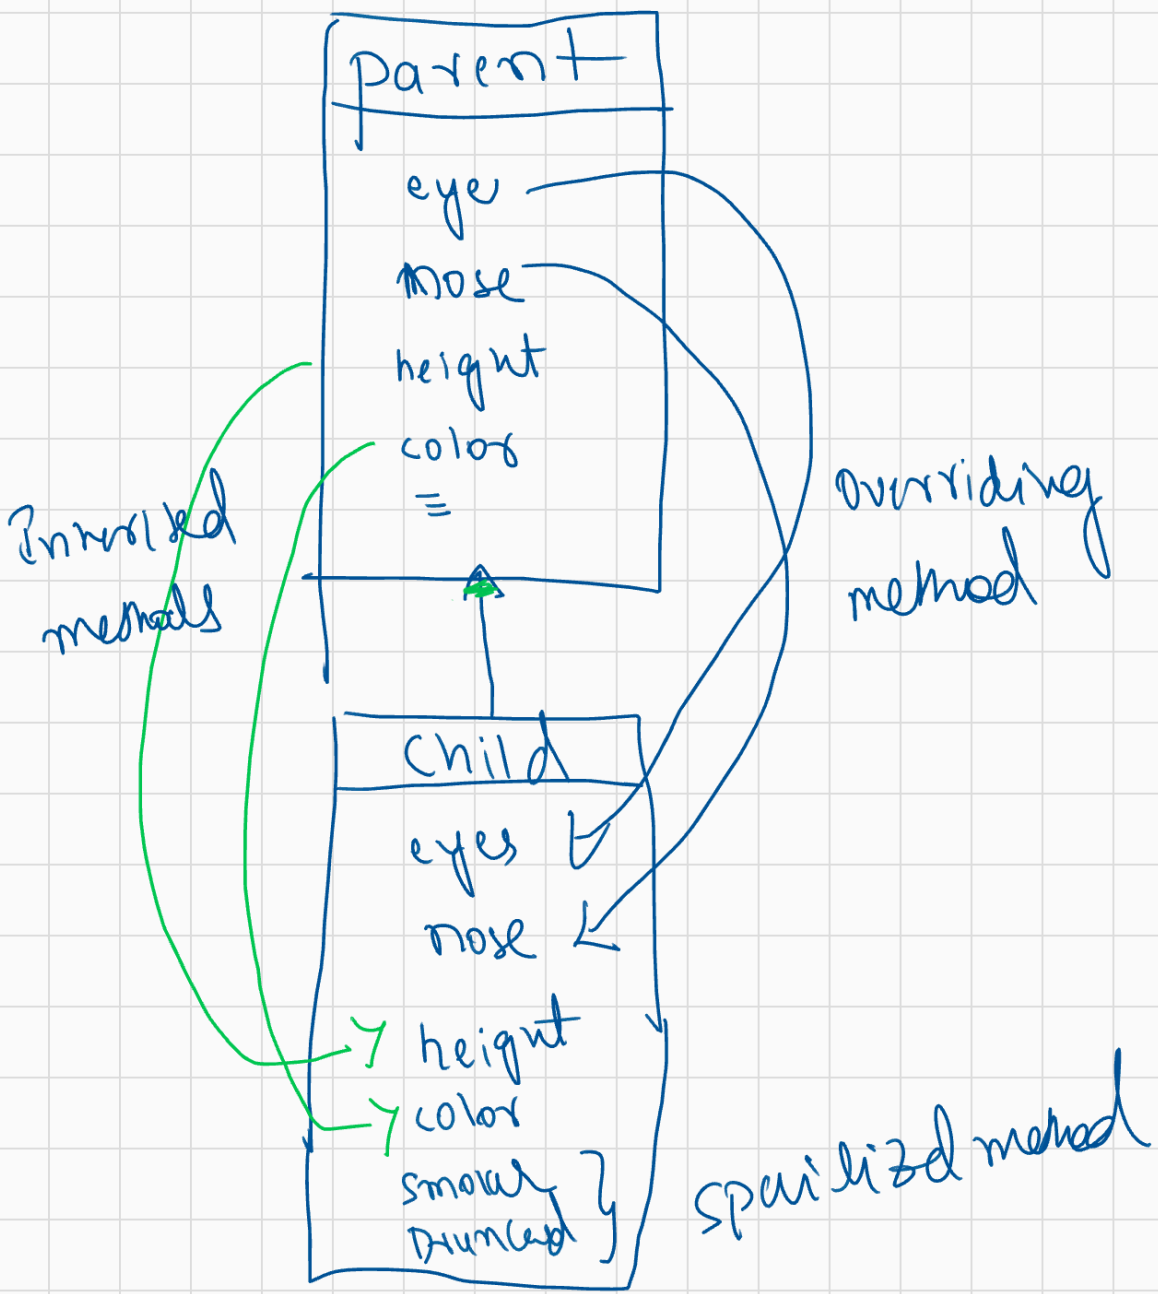 parent
eye
nose
height
color
Inherited
methods
overriding
method
child
eyes
nose
height
color
smoker
Drunked
spacilized method